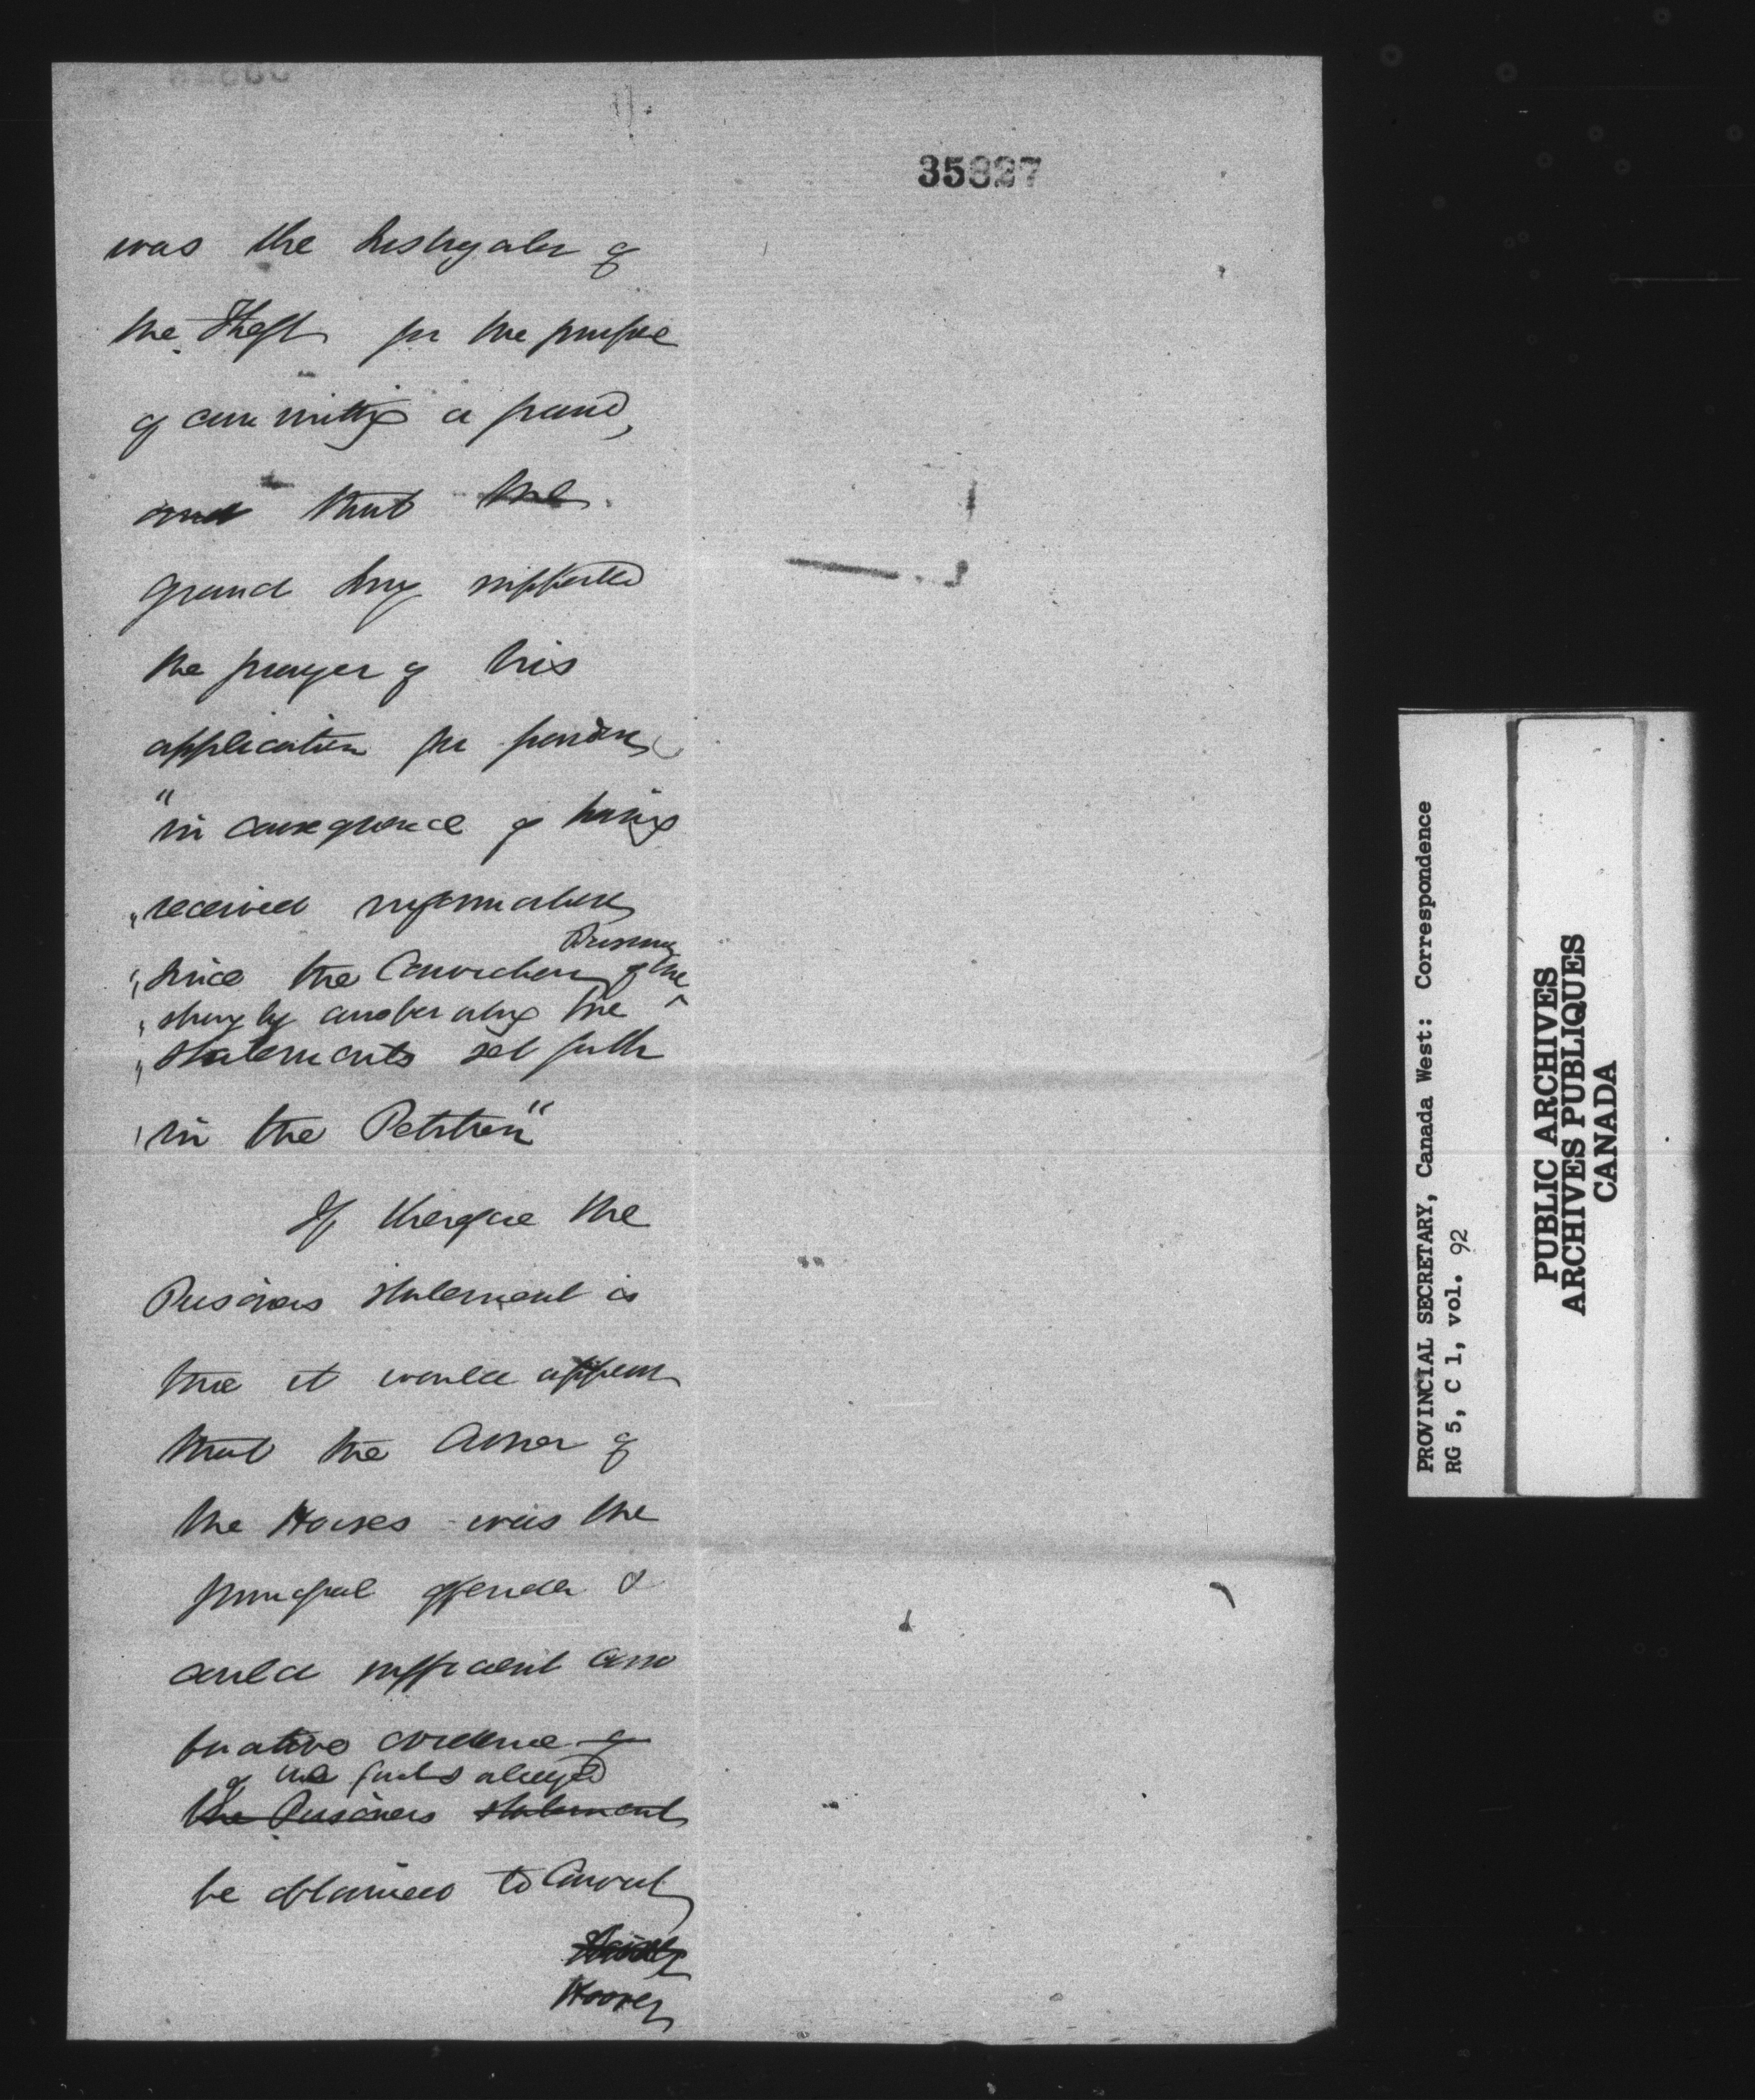 35827
was the Instigator of
the Theft for the purpose
of committing a fraud,
and that the
Grand Jury supported
the prayer of his
application for pardon
"in consequence of having
"received information
Prisoner
"since the Conviction of the
"strongly corroborating the
"statements set forth
"in the Petition"
If therefore the
Prisoners statement is
true it would appear
that the Owner of
the Horses was the
principal offender &
could sufficient corro
borative evidence of
of the facts alleged
the Prisoners statement
be obtained to Convict
Hoover
PROVINCIAL SECRETARY, Canada West: Correspondence
RG 5, C 1, vol. 92
PUBLIC ARCHIVES
ARCHIVES PUBLIQUES
CANADA